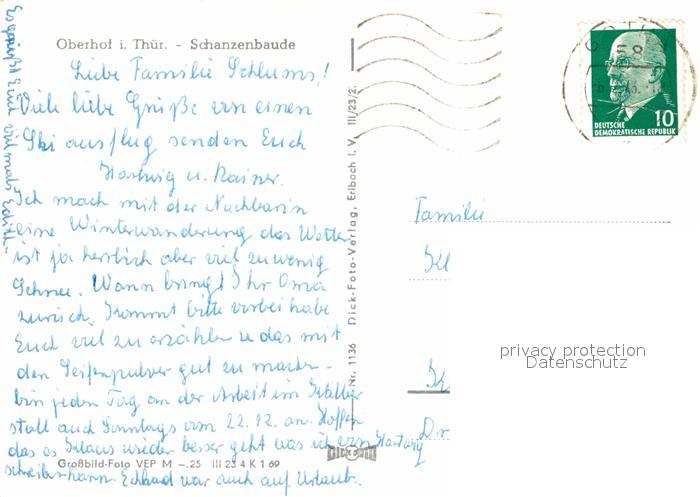 Oberhof i. Thür. - Schanzenbaude
Liebe Familie Schlums,!
Viele liebe Grüße von einen
Ski ausflug senden Euch
Hartwig u. Rainer.
Ich mach mit der Nachbarin
eine Winterwanderung das Wetter
ist ja herrlich aber viel zu wenig
Schnee. Wann bringt Ihr Oma
zurück. Kommt bitte vorbei habe
Euch viel zu erzählen so das mit
den Seifenpulver gut zu machen -
bin jeden Tag an der Arbeit im Kälber
stall auch Sonntags vom 22.12. an. Hoffen
das es Klaus wieder besser geht was ich von Hartwig
schreiben kann Eckhard war auch auf Urlaub.
Es grüßt Euch vielmals Edith
Großbild-Foto VEP M -.25 III 23 4 K 1 69
Nr. 1136 Dick-Foto-Verlag, Erlbach i. V. III/23/2.
DICK FOTO
DEUTSCHE
DEMOKRATISCHE REPUBLIK
10
Familie
Kl
K
Dr
privacy protection
Datenschutz